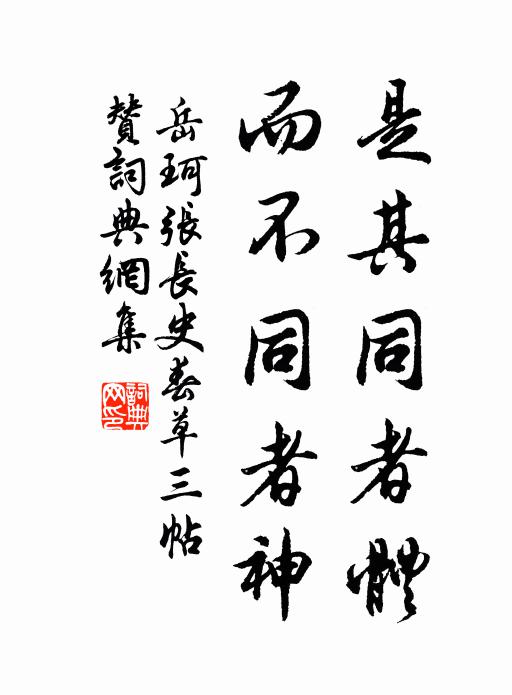 是其同者體
而不同者神
岳珂張長史春草三帖
贊詞典網集
詞典網印